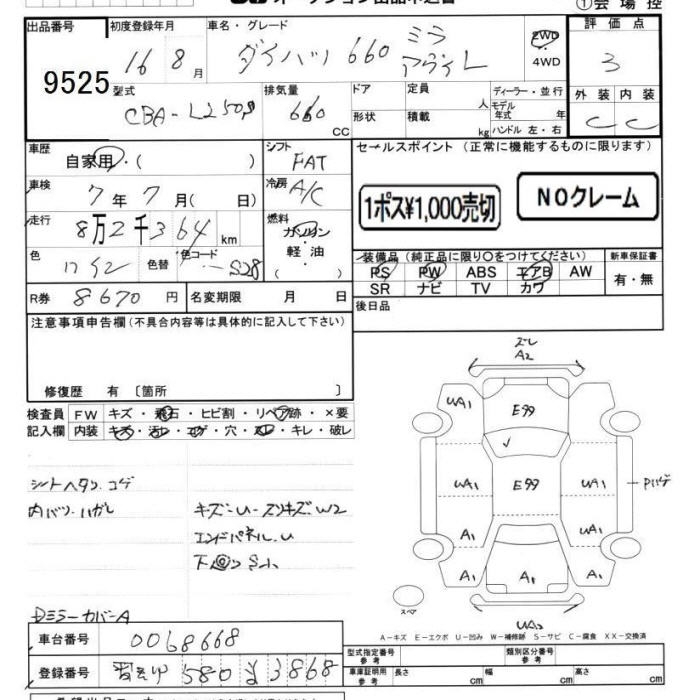 ①会場控
出品番号
初度登録年月
車名・グレード
評価点
9525
16 8月
ダイハツ 660 ミラ
アヴィL
2WD
4WD
3
型式
排気量
ドア
定員
ディーラー・並行
外装
内装
CBA-L250S
660
CC
形状
積載
人
kg
モデル
年式
年
ハンドル 左・右
C
C
車歴
自家用・( )
シフト
FAT
セールスポイント(正常に機能するものに限ります)
車検
7年7月( 日)
冷房
A/C
1ポス¥1,000売切
NOクレーム
走行
8万2千364km
燃料
ガソリン
・
軽油
( )
色
色替
色コード
S28
装備品(純正品に限り○をつけてください)
新車保証書
PS
PW
ABS
エアB
AW
有・無
SR
ナビ
TV
カワ
R券
8670円
名変期限
月
日
後日品
注意事項申告欄(不具合内容等は具体的に記入して下さい)
修復歴 有 〔箇所 〕
ズレ
A2
UA1
E99
検査員
FW
キズ・飛石・ヒビ割・リペア跡・×要
記入欄
内装
キズ・汚レ・コゲ・穴・スレ・キレ・破レ
シートヘタリ.コゲ
内バリ.ハガレ
キズ-U-スリキズ.W2
エンドパネル.U
UA1
E99
UA1
Pハゲ
A1
UA1
A1
A1
A1
スペア
UA2
Dミラーカバー A
A-キズ E-エクボ U-凹み W-補修跡 S-サビ C-腐食 XX-交換済
車台番号
0068668
型式指定番号
参考
類別区分番号
参考
登録番号
580 3868
車庫証明用
参考
長さ
cm
幅
cm
高さ
cm